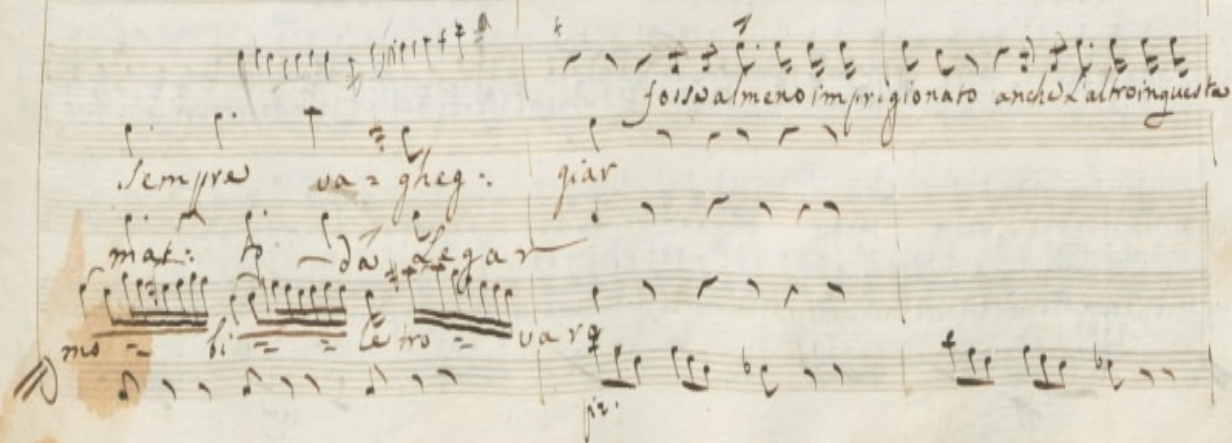 fosse almeno imprigionato anche l'altro in questa
Sempre va = gheg :. giar
mat :. ti da legar
mo = bi = = le tro = var